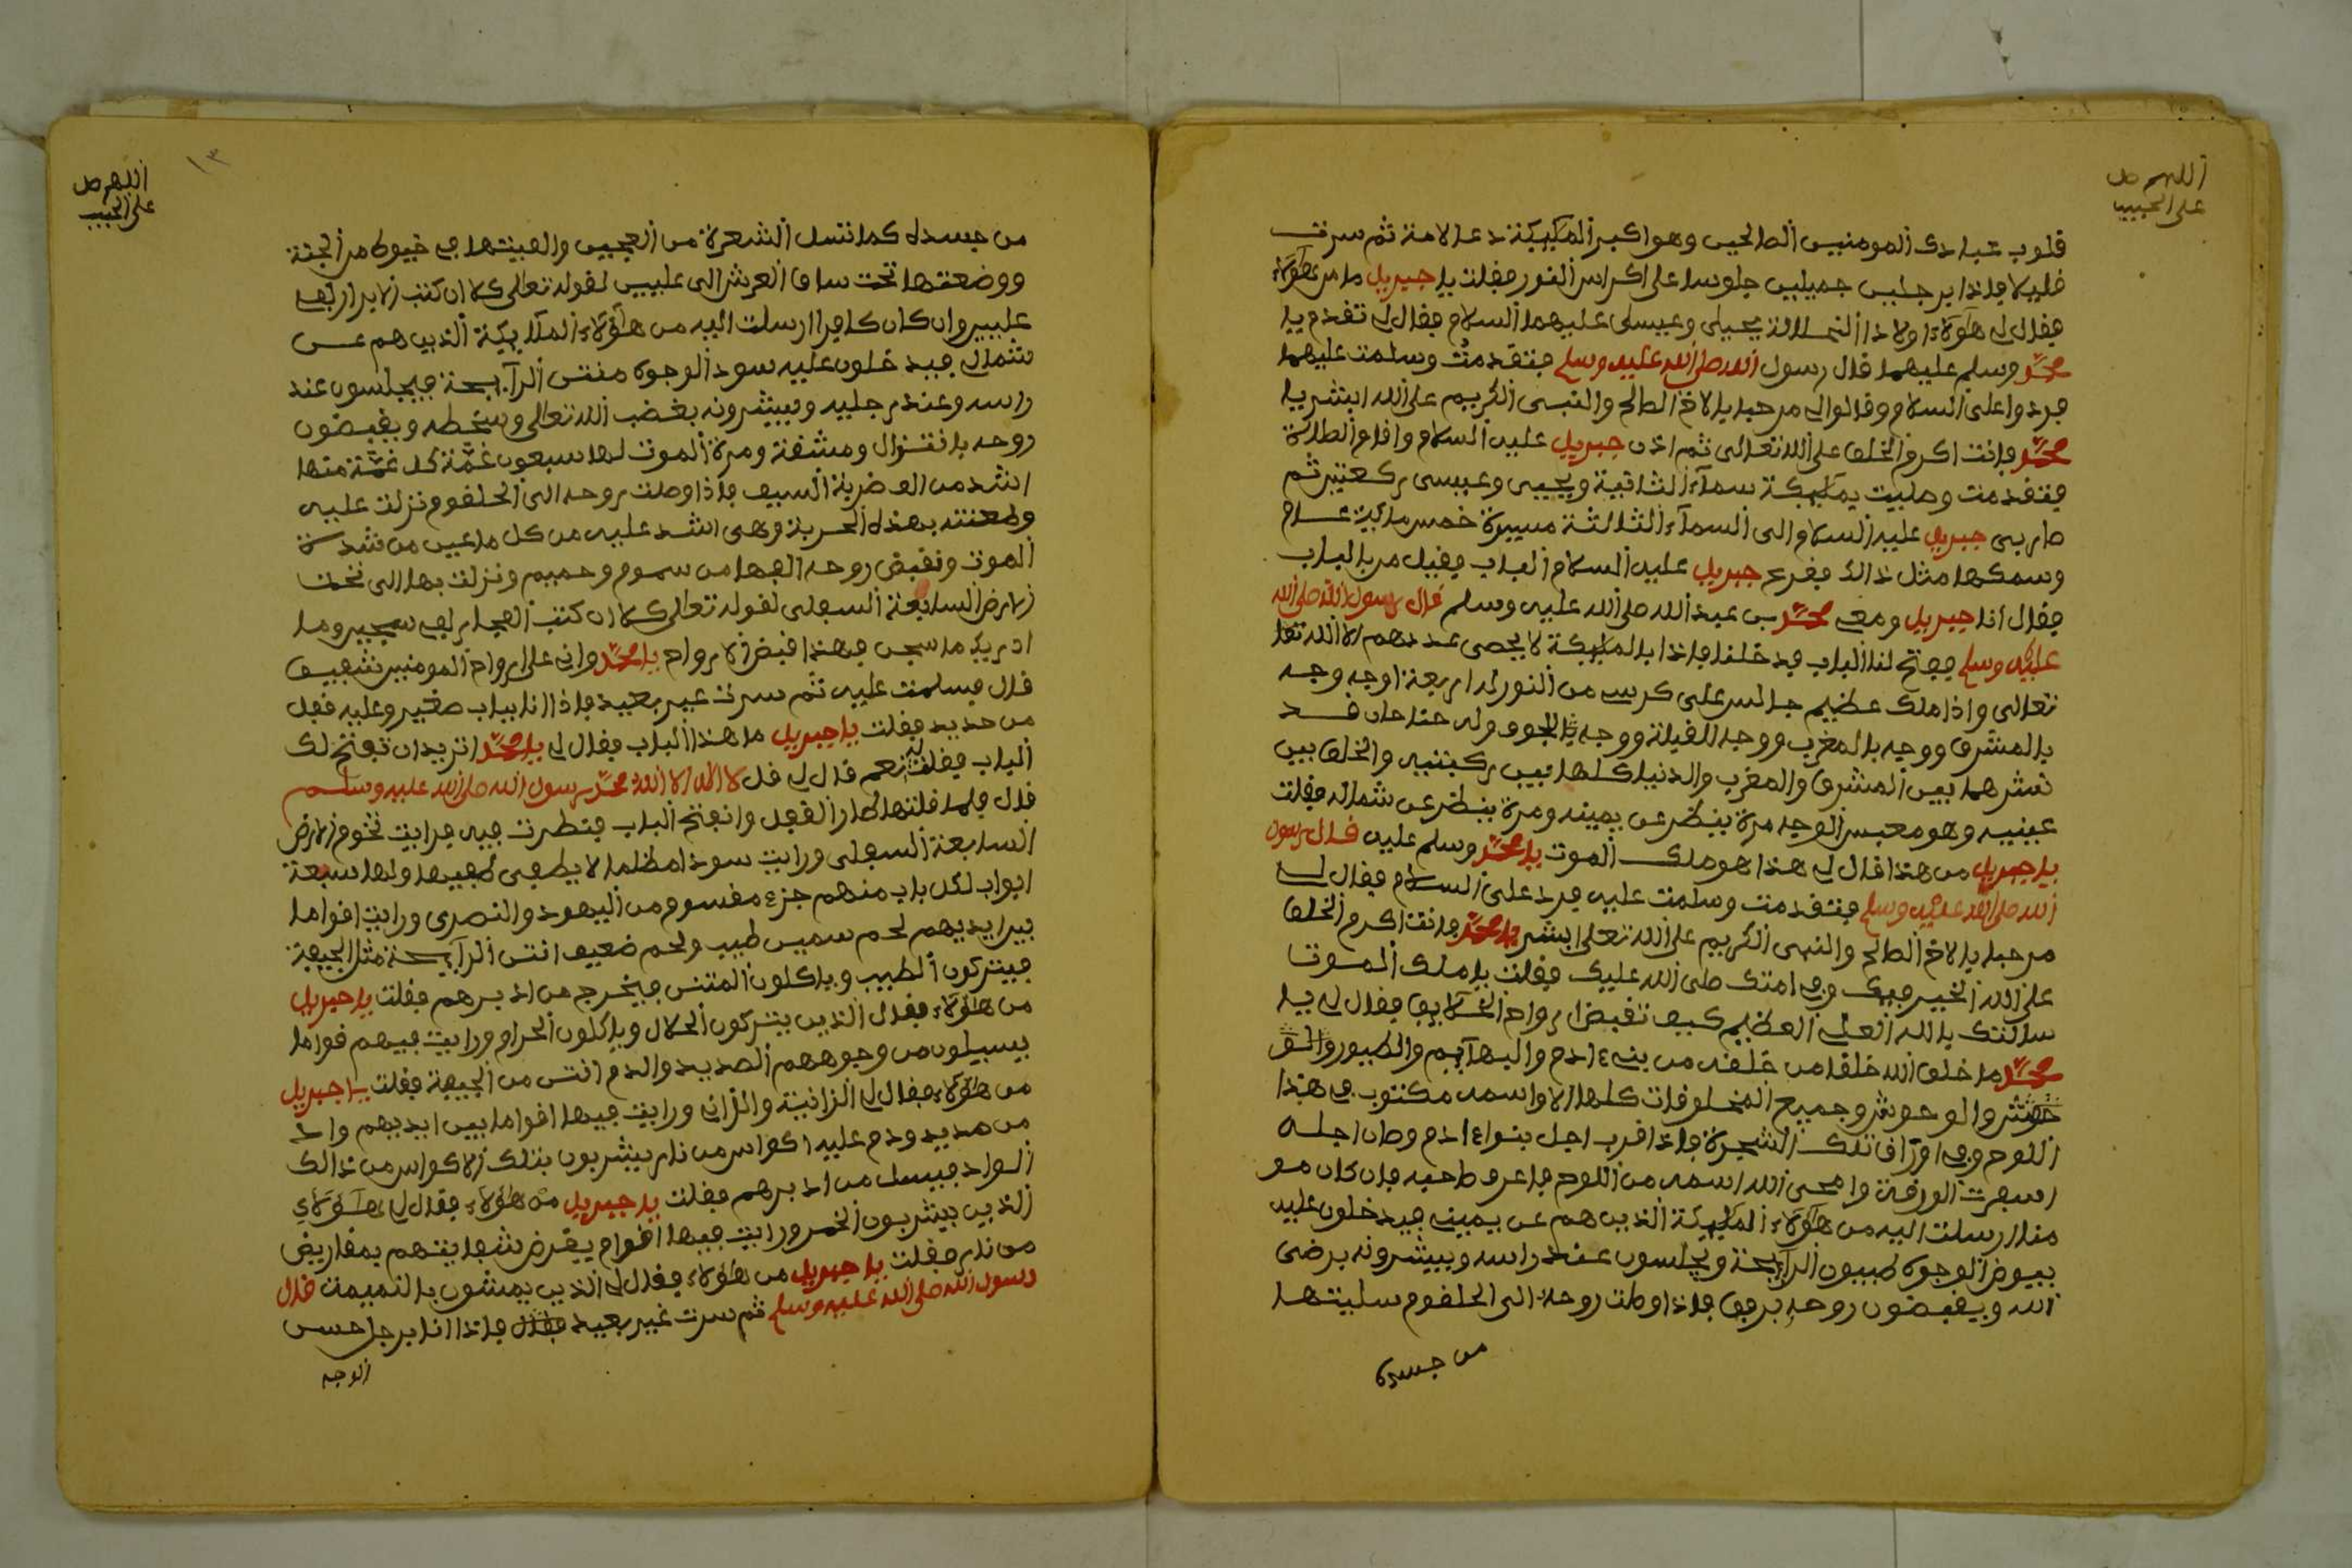 اللهم صل
على الحبيب
قلوب عبادك المومنين الصالحين وهو اكبر المليكة دعا لامة ثم سرت
قليلا فاذا برجلين جميلين جلوسا على اكراس النور فقلت يا جبريل ما من هؤلاء
فقال لي هؤلاء اولاد الخالة يحيى وعيسى عليهما السلام فقال لي تقدم يا
محمد وسلم عليهما قال رسول الله صلى الله عليه وسلم فتقدمت وسلمت عليهما
فردوا على السلام وقالوا لي مرحبا بالاخ الصالح والنبي الكريم على الله ابشر يا
محمد فانت اكرم الخلق على الله تعالى ثم اذن جبريل عليه السلام واقام الصلاة
فتقدمت وصليت بمليكة سماء الثانية ويحيى وعيسى ركعتين ثم
صار بي جبريل عليه السلام الى السماء الثالثة مسيرة خمس ماية عام
وسمكها مثل ذالك فقرع جبريل عليه السلام الباب فقيل من بالباب
فقال انا جبريل ومعي محمد بن عبد الله صلى الله عليه وسلم قال رسول الله صلى الله
عليه وسلم ففتح لنا الباب فدخلنا فاذا بالمليكة لا يحصى عددهم الا الله تعا
تعالى واذا ملك عظيم جالس على كرسي من النور له اربعة اوجه وجه
بالمشرق ووجه بالمغرب ووجه للقبلة ووجه للجوف وله جناحان قد
نشرهما بين المشرق والمغرب والدنيا كلها بين ركبتيه والخلق بين
عينيه وهو معبس الوجه مرة ينظر عن يمينه ومرة ينظر عن شماله فقلت
يا جبريل من هذا قال لي هذا هو ملك الموت يا محمد وسلم عليه قال رسول
الله صلى الله عليه وسلم فتقدمت وسلمت عليه فرد على السلام فقال لي
مرحبا بالاخ الصالح والنبي الكريم على الله تعلى ابشر يا محمد فانت اكرم الخلق
على الله الخير فيك وفي امتك صلى الله عليك فقلت يا ملك الموت
سالتك بالله العلي العظيم كيف تقبض ارواح الخلايق فقال لي يا
محمد ما خلق الله خلقا من خلقه من بني ءادم والبهايم والطيور والو
حوش والوحوش وجميع المخلوقات كلها الا واسمه مكتوب في هذا
اللوح وفي اوراق تلك الشجرة فاذا قرب اجل بنوا ءادم وحان اجله
اسفرت الورقة وامحى الله اسمه من اللوح فاعرف صاحبه فان كان مو
منا ارسلت اليه من هؤلاء المليكة الذين هم عن يمينى فيدخلون عليه
بيوض الوجوه طيبون الرايحة ويجلسون عند راسه ويبشرونه برضى
الله ويقبضون روحه برفق فاذا وصلت روحه الى الحلقوم سليتها
من جسده
اللهم صل
على الحبيب
١٣
من جسده كما تتسل الشعرة من العجين والفيتها في خيوط من الجنة
ووضعتها تحت ساق العرش الى عليين لقوله تعالى كلا ان كتب الابرار لفي
عليين وان كان كافرا ارسلت اليه من هؤلاء الملايكة الذين هم عن
شمالي فيدخلون عليه سود الوجوه منتن الرايحة فيجلسون عند
راسه وعند رجليه ويبشرونه بغضب الله تعالى وسخطه ويقبضون
روحه بانتزال ومشقة ومرة الموت لها سبعون غمة كل غمة منها
اشد من الف ضربة السيف فاذا وصلت روحه الى الحلقوم نزلت عليه
وطعنته بهذه الحربة وهي اشد عليه من كل ما عين من شدة
الموت ونقبض روحه القها من سموم وحميم ونزلت بها الى تحت
الارض السابعة السفلى لقوله تعالى كلا ان كتب الفجار لفي سجين وما
ادريك ما سجين فهذا قبض الارواح يا محمد واني على ارواح المومنين شفيق
قال فسلمت عليه ثم سرت غير بعيد فاذا انا بباب صغير وعليه قفل
من حديد فقلت يا جبريل ما هذا الباب فقال لي يا محمد اتريد ان تفتح لك
الباب فقلت له نعم قال لي قل لا اله الا الله محمد رسول الله صلى الله عليه وسلم
قال فلما قلتها طار القفل وانفتح الباب فنظرت فيه فرايت تخوم الارض
السابعة السفلى ورايت سودا مظلما لا يطفى لهيبها ولها سبعة
ابواب لكل باب منهم جزء مقسوم من اليهود والنصرى ورايت اقواما
بين ايديهم لحم سمين طيب ولحم ضعيف انتن الرايحة مثل الجيفة
فيتركون الطيب وياكلون المنتن فيخرج من ادبرهم فقلت يا جبريل
من هؤلاء فقال الذين يتركون الحلال وياكلون الحرام ورايت فيهم قواما
يسيلون من وجوههم الصديد والدم انتن من الجيفة فقلت يا جبريل
من هؤلاء فقال لي الزانية والزاني ورايت فيها اقواما بين ايديهم واد
من صديد ودم عليه اكواس من نار يشربون بتلك الاكواس من ذالك
الواد فيسل من ادبرهم فقلت يا جبريل من هؤلاء فقال لي هؤلاء
الذين يشربون الخمر ورايت فيها اقوام يقرض شفايتهم بمقاريض
من نار فقلت يا جبريل من هؤلاء فقال لي الذين يمشون بالنميمة قال
رسول الله صلى الله عليه وسلم ثم سرت غير بعيد فاذا انا برجل حسن
الوجه